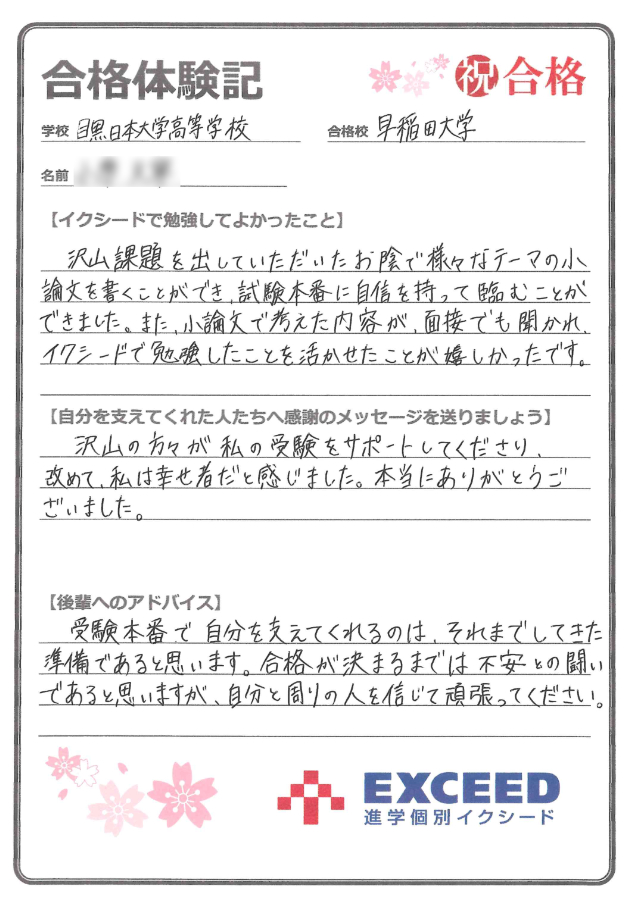 合格体験記
祝合格
学校 目黒日本大学高等学校
合格校 早稲田大学
名前
【イクシードで勉強してよかったこと】
沢山課題を出していただいたお陰で様々なテーマの小
論文を書くことができ、試験本番に自信を持って臨むことが
できました。また、小論文で考えた内容が、面接でも聞かれ、
イクシードで勉強したことを活かせたことが嬉しかったです。
【自分を支えてくれた人たちへ感謝のメッセージを送りましょう】
沢山の方々が私の受験をサポートしてくださり、
改めて、私は幸せ者だと感じました。本当にありがとうご
ざいました。
【後輩へのアドバイス】
受験本番で自分を支えてくれるのは、それまでしてきた
準備であると思います。合格が決まるまでは不安との闘い
であると思いますが、自分と周りの人を信じて頑張ってください。
EXCEED
進学個別イクシード